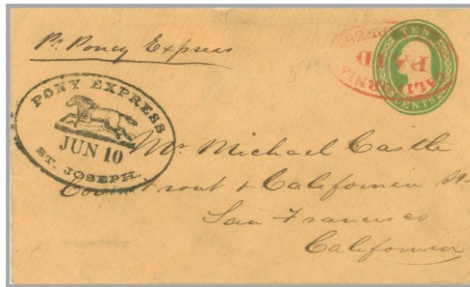 Pr Poney Express
TEN
CENTS
PAID
PONY EXPRESS
JUN 10
ST. JOSEPH.
Mr Michael Castle
Front & Califonea St
San Francisco
Califonea